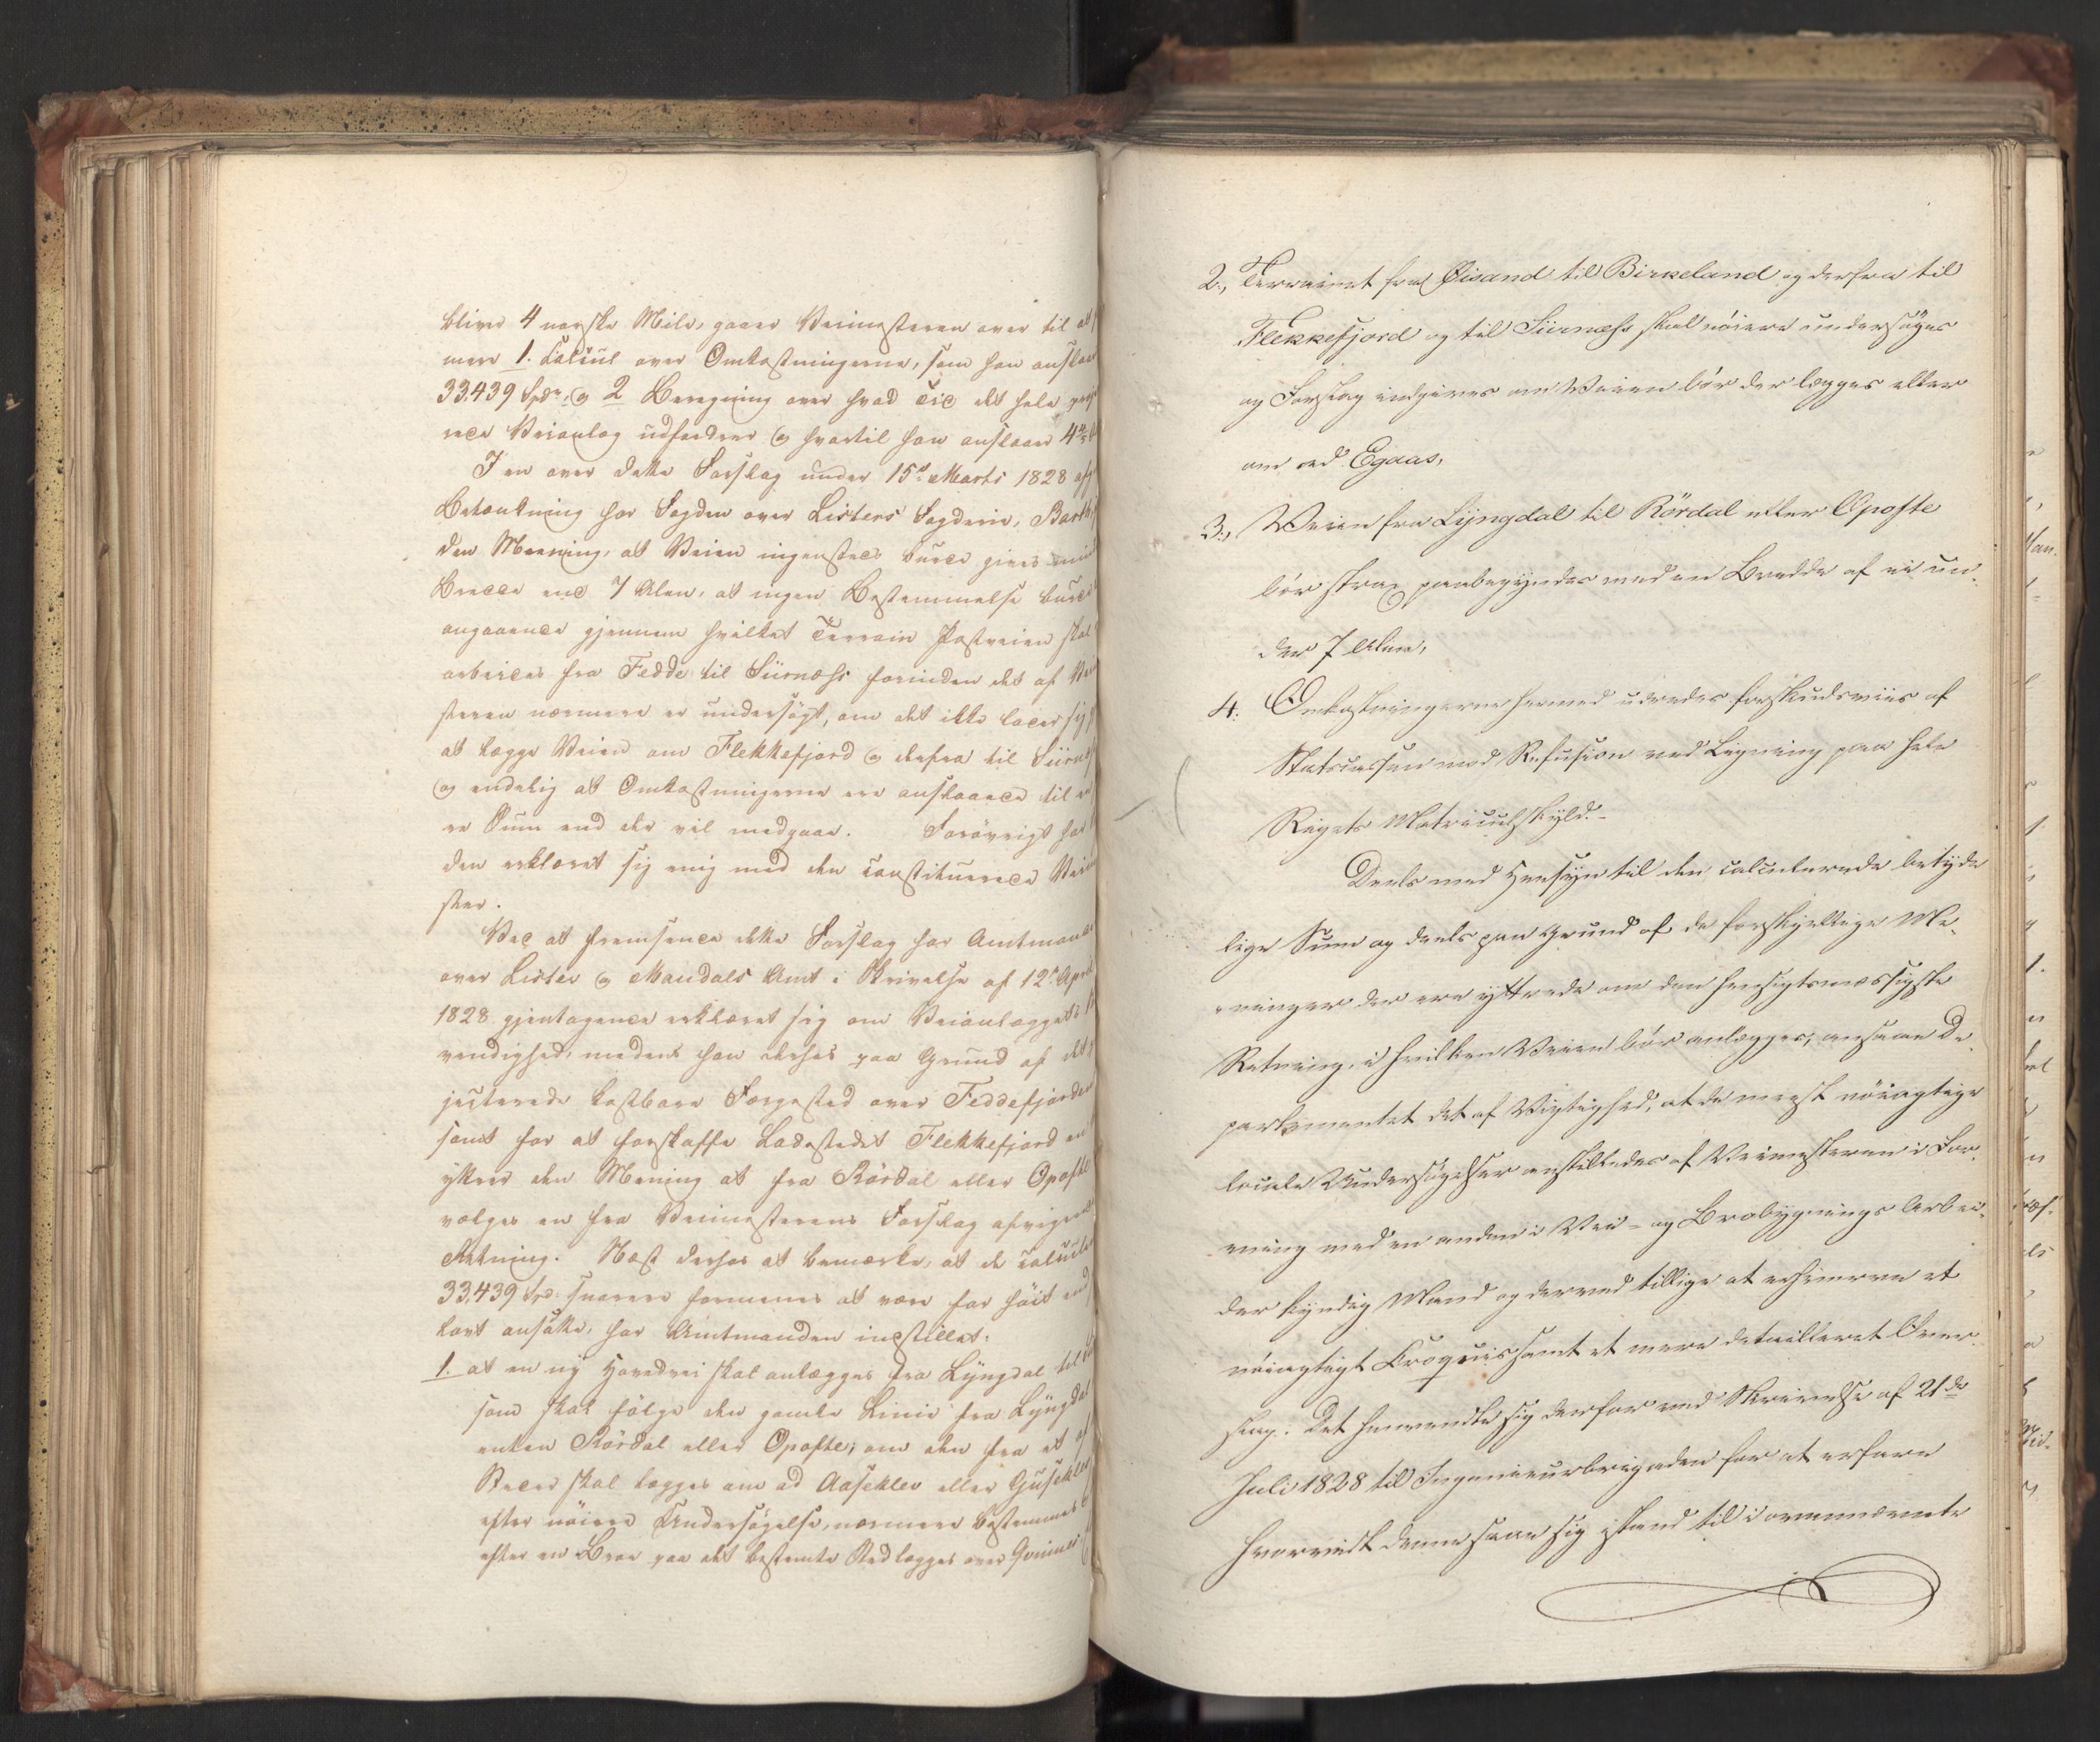 bliver 4 norske Mile, gaaer Veimesteren over til at
mere 1. Calcul over Omkostningerne, som han anslaaer
33,439 Spdr, og 2 Beregning over hvad Tid det hele proje
rede Veianlæg udfordrer og hvortil han anslaaer 4
I en over dette Forslag under 15de Marts 1828 afg
Betænkning har Fogden over Listers Fogderie, Barth
den Meening, at Veien ingensteds burde gives mind
Bredde end 7 Alen, at ingen Bestemmelse burde
angaaende gjennem hvilket Terrain Postveien skal
arbeides fra Fedde til Siirnæss forinden det af Vei
steren nærmere er undersögt, om det ikke lader sig
at lægge Veien om Flekkefjord og derfra til Siirnæs
og endelig at Omkostningerne ere anslaaede til en
re Sum end der vil medgaae. Forövrigt har
den erklæret sig enig med den constituerede Veime
ster.
Ved at fremsende dette Forslag har Amtmanden
over Lister og Mandals Amt i Skrivelse af 12te April
1828 gjentagende erklæret sig om Veianlæggets
vendighed, medens han derhos paa Grund af det
jecterede kostbare Færgested over Feddefjorden
samt for at forskaffe Ladestedet Flekkefjord en
yttrer den Mening at fra Rördal eller Opofte
vælges en fra Veimesterens Forslag afvigende
Retning. Næst derhos at bemærke, at de calcule
33,439 Spd: snarere formenes at være for höit end
lavt ansatte, har Amtmanden indstillet:
1. at en ny Hovedvei skal anlægges fra Lyngdal til
som skal fölge den gamle Linie fra Lyngdal
enten Rördal eller Opofte; om den fra et af
Steder skal lægges om ad Aaseklev eller Gyseklev
efter nöiere Undersögelse, nærmere bestemmes
efter en Broe paa det bestemte Sted lægges over
2., Terrainet fra Öisand til Birkeland og derfra til
Flekkefjord og til Siirnæss skal nöiere undersöges
og Forslag indgives om Veien bör der lægges eller
om ad Egaas,
3., Veien fra Lyngdal til Rördal eller Opofte
bör strax paabegyndes med en Bredde af ei un-
der 7 Alen,
4. Omkostningerne hermed udredes forskudsviis af
Statscassen mod Refusion ved Ligning paa hele
Rigets Matriculskyld.-
Deels med Hensyn til den calculerede betyde
lige Sum og deels paa Grund af de forskjellige Me-
ninger der ere yttrede om den hensigtsmæssigste
Retning, i hvilken Veien bör anlægges, ansaae De
partementet det af Vigtighed, at de meest nöiagtige
locale Undersögelser anstilledes af Veimesteren i For-
ening med en anden i Vei- og Brobygnings Arbei-
der kyndig Mand og derved tillige at erhverve et
nöiagtigt Croquis samt et mere detailleret Over-
slag. Det henvendte sig derfor ved Skrivelse af 21de
Juli 1828 til Ingenieurbrigaden for at erfare
hvorvidt denne saae sig istand til i ovennævnte